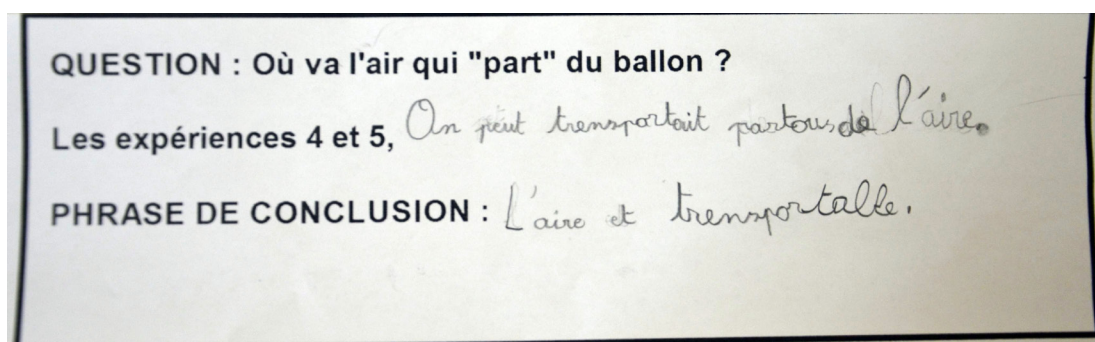 QUESTION : Où va l'air qui "part" du ballon ?
Les expériences 4 et 5, On peut transportait partous de l'aire.
PHRASE DE CONCLUSION : L'aire et transportalle.